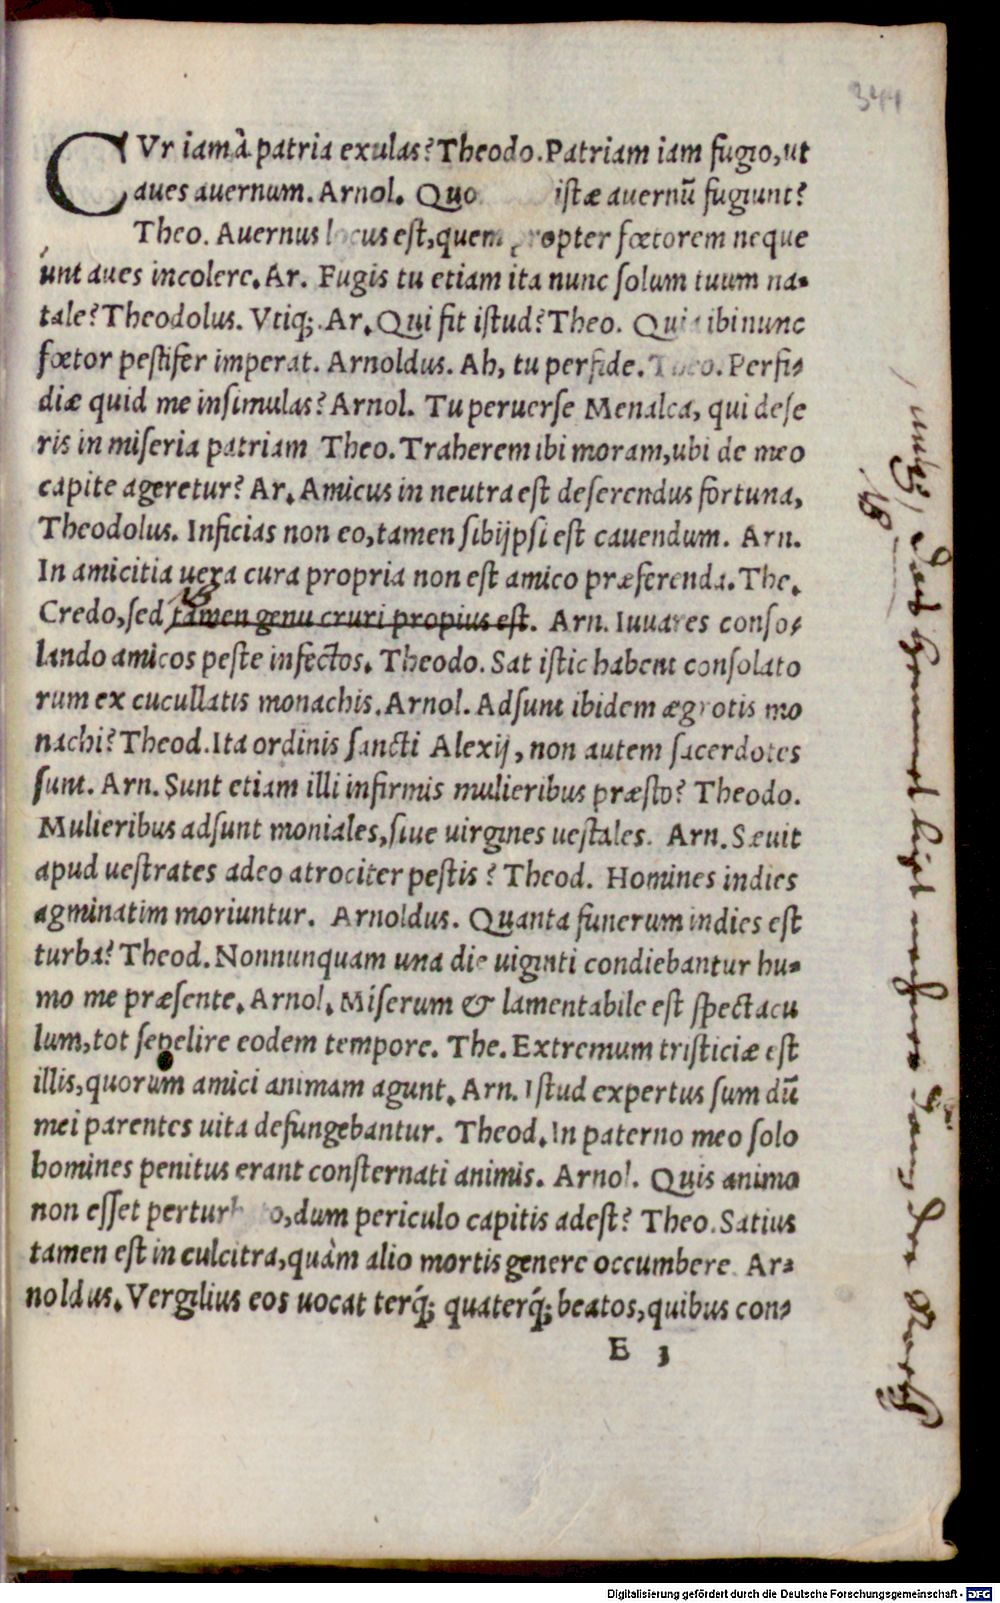 344
CVr iam à patria exulas? Theodo. Patriam iam fugio, ut
aues auernum. Arnol. Quo istæ auernũ fugiunt?
Theo. Auernus locus est, quem propter fœtorem neque
unt aues incolere. Ar. Fugis tu etiam ita nunc solum tuum na-
tale? Theodolus. Vtiq;. Ar. Qui fit istud? Theo. Quia ibi nunc
fœtor pestifer imperat. Arnoldus. Ah, tu perfide. Theo. Perfi-
diæ quid me insimulas? Arnol. Tu peruerse Menalca, qui dese
ris in miseria patriam Theo. Traherem ibi moram, ubi de meo
capite ageretur? Ar. Amicus in neutra est deserendus fortuna,
Theodolus. Inficias non eo, tamen sibijpsi est cauendum. Arn.
In amicitia uera cura propria non est amico præferenda. The.
Credo, sed tamen genu cruri propius est. Arn. Iuuares conso-
lando amicos peste infectos. Theodo. Sat istic habent consolato
rum ex cucullatis monachis. Arnol. Adsunt ibidem ægrotis mo
nachi? Theod. Ita ordinis sancti Alexij, non autem sacerdotes
sunt. Arn. Sunt etiam illi infirmis mulieribus præsto? Theodo.
Mulieribus adsunt moniales, siue uirgines uestales. Arn. Sæuit
apud uestrates adeo atrociter pestis? Theod. Homines indies
agminatim moriuntur. Arnoldus. Quanta funerum indies est
turba? Theod. Nonnunquam una die uiginti condiebantur hu-
mo me præsente. Arnol. Miserum & lamentabile est spectacu
lum, tot sepelire eodem tempore. The. Extremum tristiciæ est
illis, quorum amici animam agunt. Arn. Istud expertus sum dũ
mei parentes uita defungebantur. Theod. In paterno meo solo
homines penitus erant consternati animis. Arnol. Quis animo
non esset perturbato, dum periculo capitis adest? Theo. Satius
tamen est in culcitra, quàm alio mortis genere occumbere Ar-
noldus. Vergilius eos uocat terq́; quaterq́; beatos, quibus con-
E 3
Digitalisierung gefördert durch die Deutsche Forschungsgemeinschaft - DFG